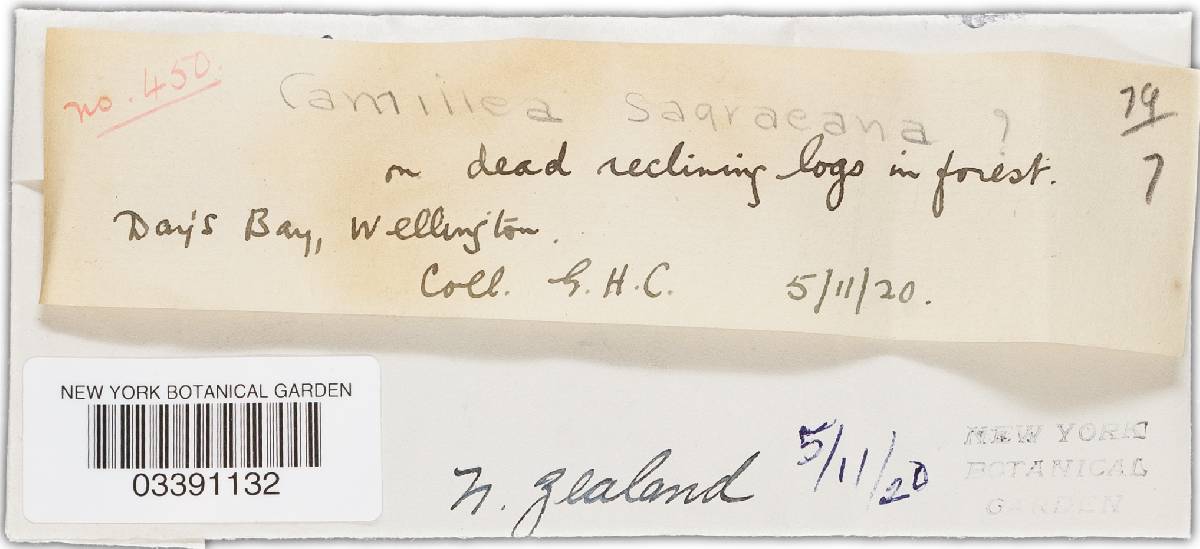 no. 450.
Camillea Sagraeana ?
79
7
on dead reclining logs in forest.
Day's Bay, Wellington.
Coll. G.H.C. 5/11/20.
NEW YORK BOTANICAL GARDEN
03391132
N. Zealand 5/11/20
NEW YORK
BOTANICAL
GARDEN